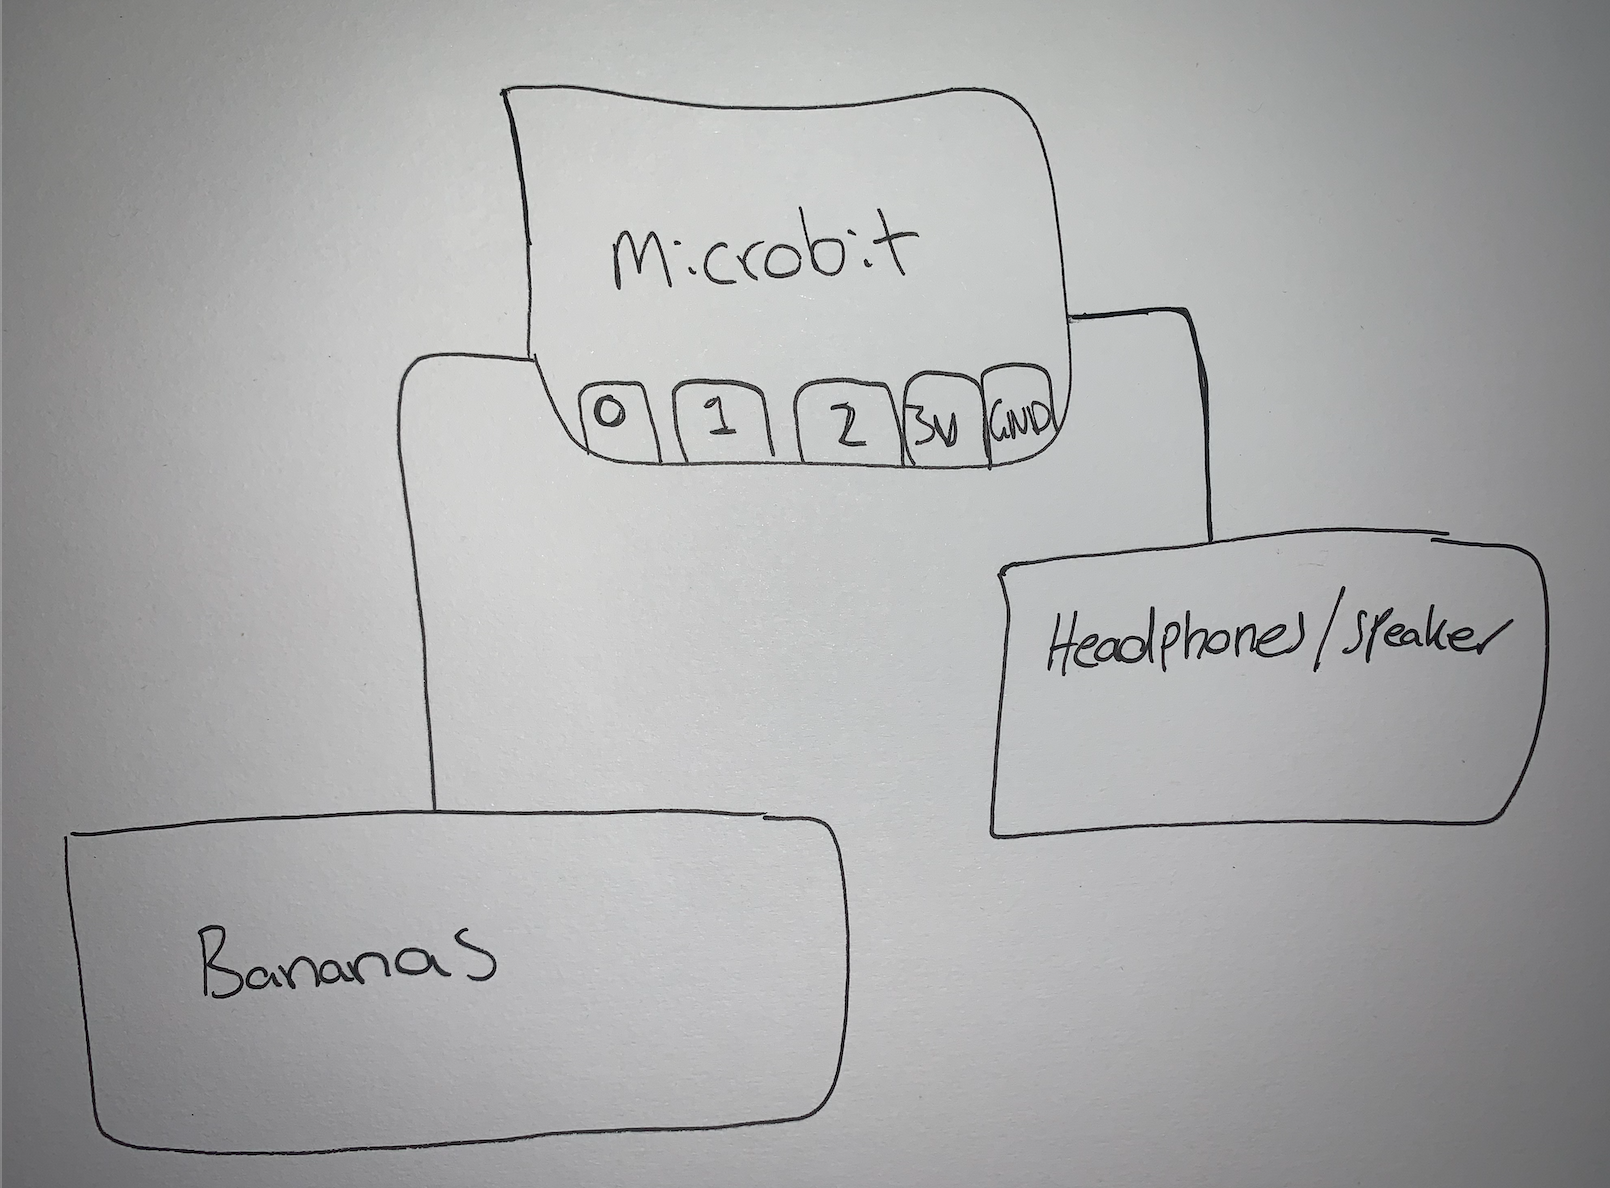 Microbit
0 1 2 3V GND
Headphones/speaker
Bananas